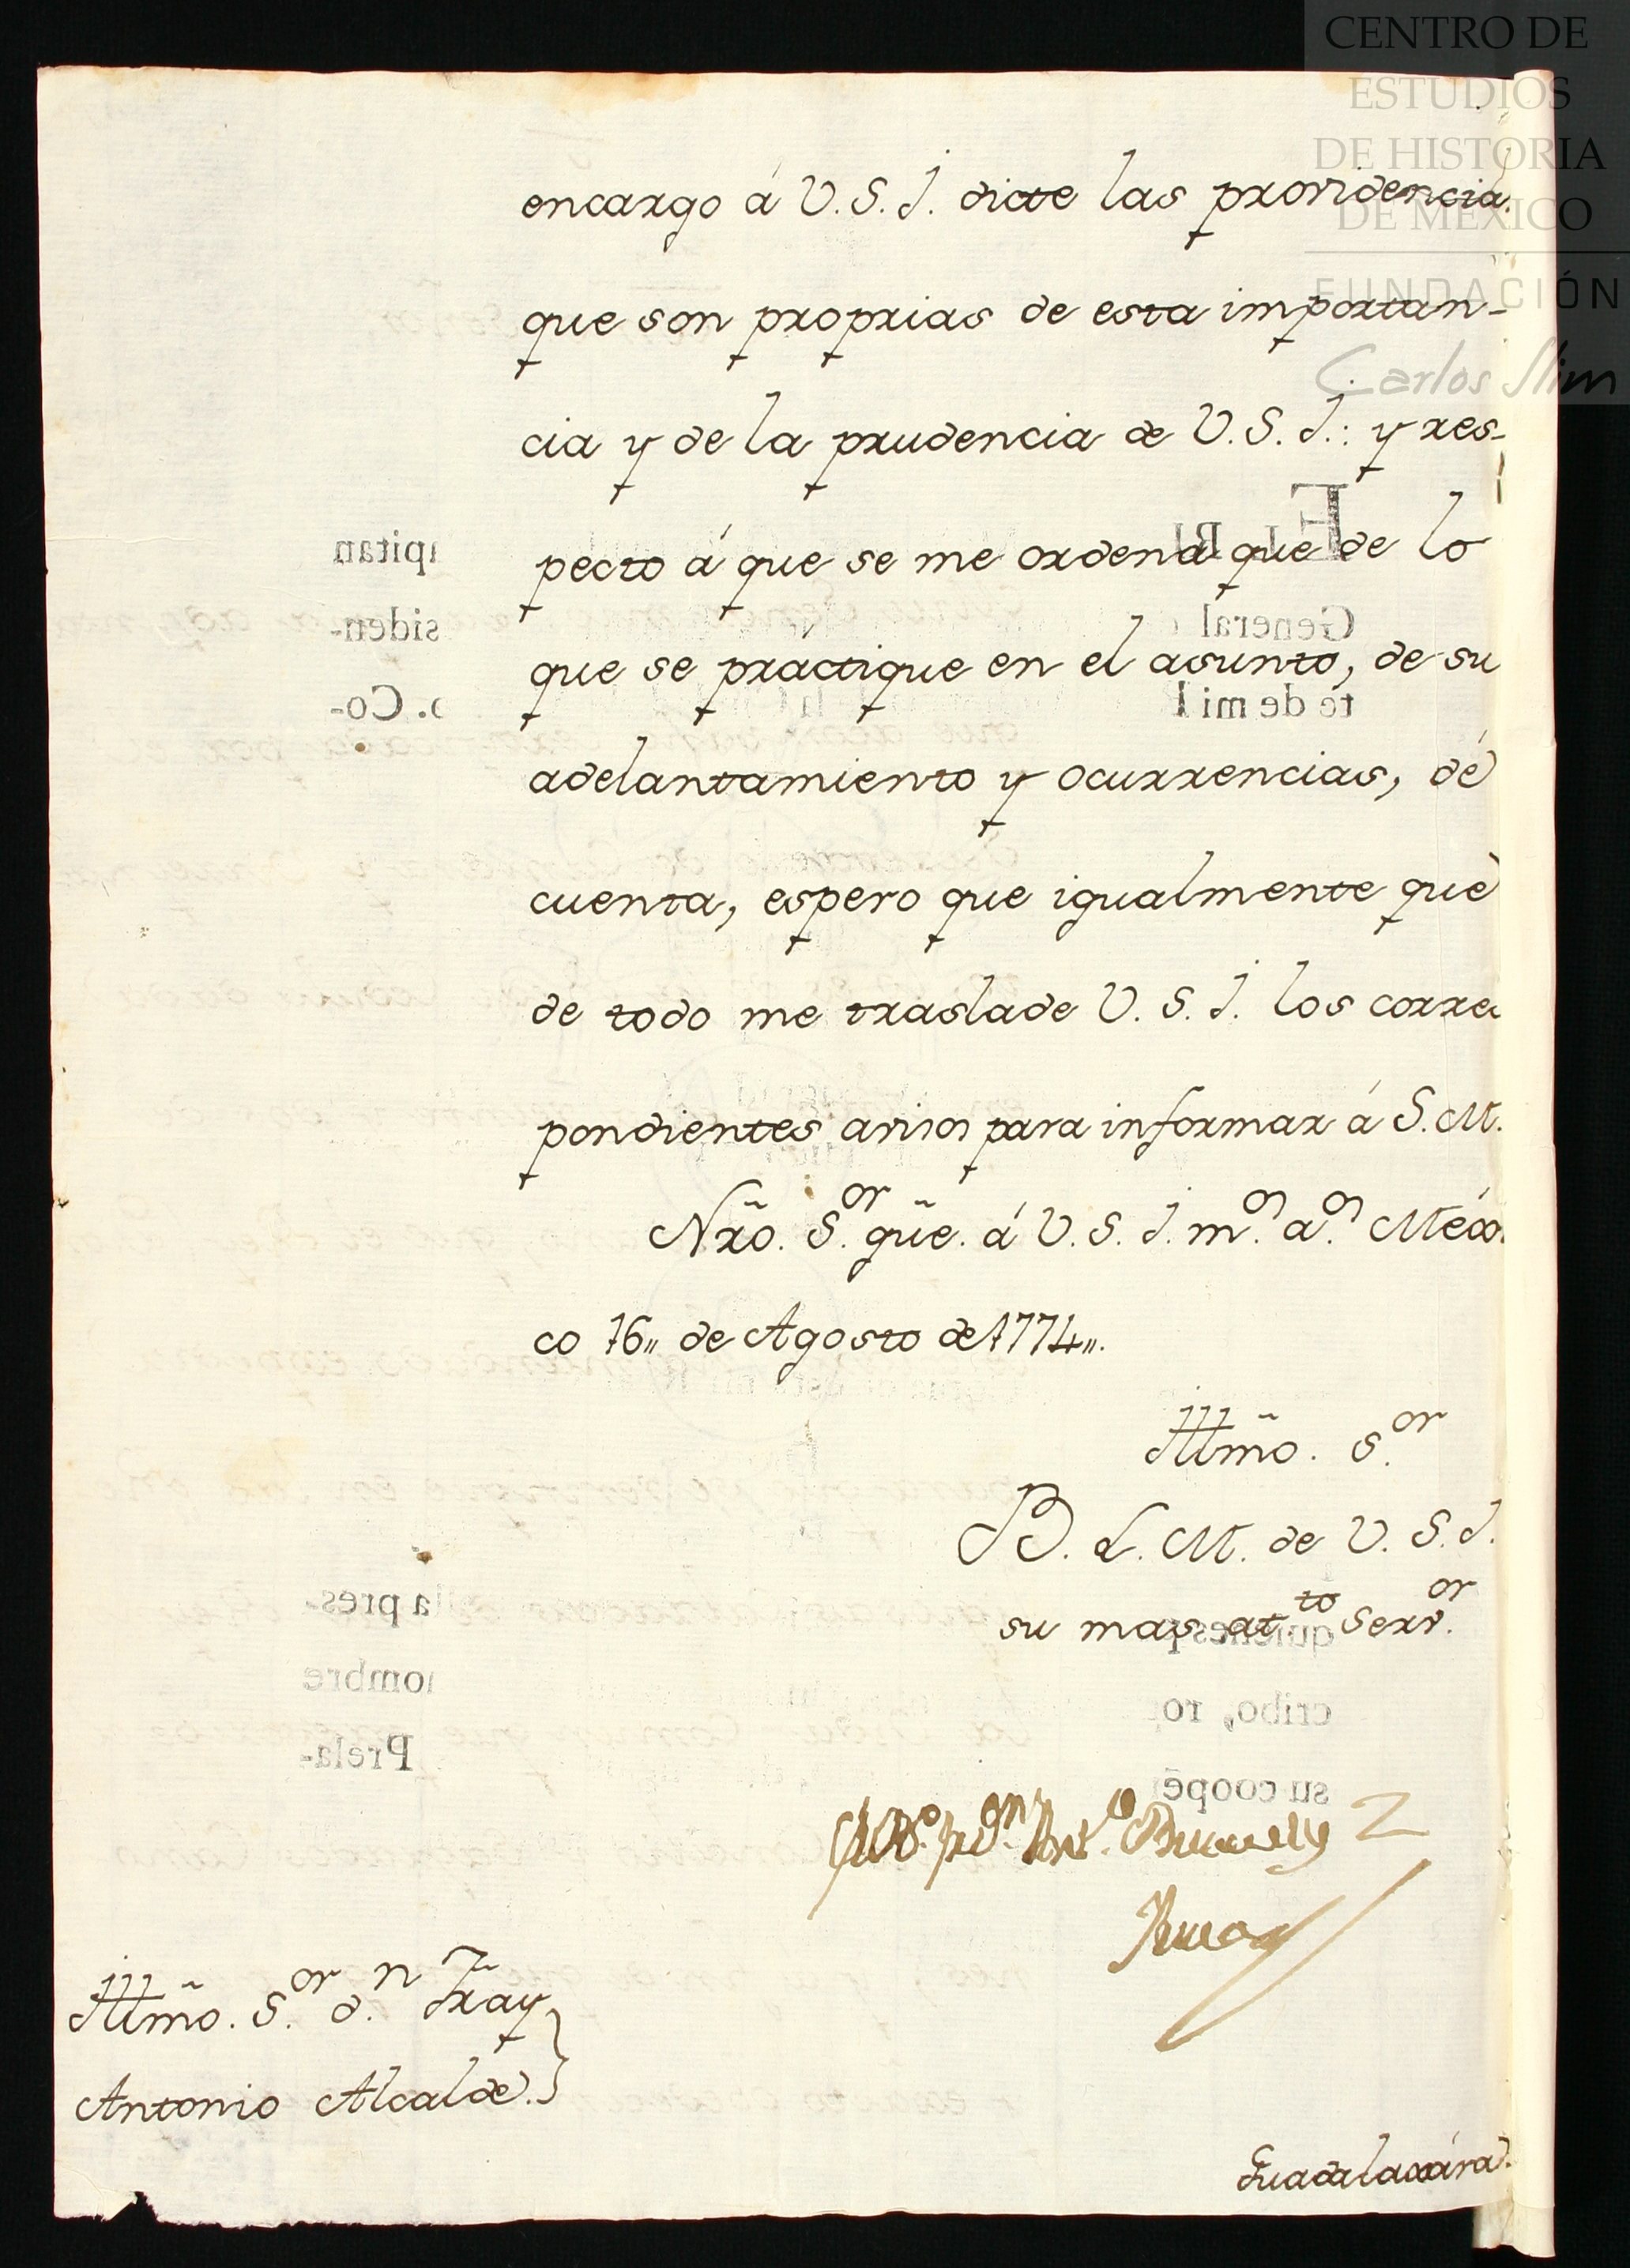 CENTRO DE
ESTUDIOS
DE HISTORIA
DE MÉXICO
FUNDACIÓN
Carlos Slim
encargo á V.S.J. dicte las providencia
que son proprias de esta importan-
cia y de la prudencia de V.S.J.: y res-
pecto á que se me ordena que de lo
que se práctique en el asunto, de su
adelantamiento y ocurrencias, dé
cuenta, espero que igualmente que
de todo me traslade V.S.J. los corre
pondientes avisos para informar á S.M.
Nrõ. S.or güe. á V.S.J. m.s a.s Méxi
co 16,, de Agosto de 1774,,.
Illmõ. S.or
B. L. M. de V.S.J.
su mas at.to Serv.or
Bucarely
Illmõ. S.or d.n Fray
Antonio Alcalde.
Guadalaxára.